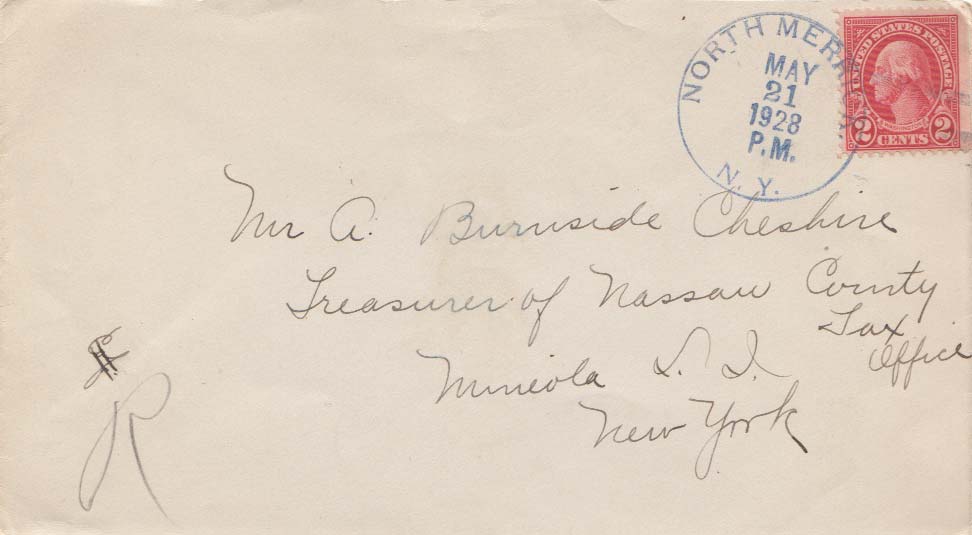 NORTH MERRICK
MAY
21
1928
P.M.
N. Y.
UNITED STATES POSTAGE
WASHINGTON
2 CENTS 2
Mr A. Burnside Cheshire
Treasurer of Nassau County
Tax
Office
Mineola L. I.
New York
R